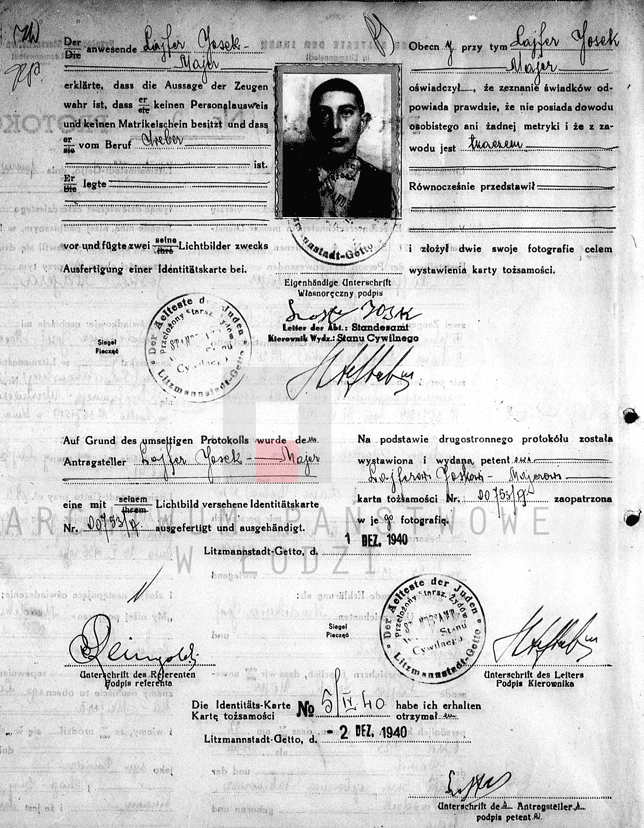 Der
Die anwesende Lajfer Josek-
Majer
erklärte, dass die Aussage der Zeugen
wahr ist, dass er
sie keinen Personalausweis
und keinen Matrikelschein besitzt und dass
er
sie vom Beruf Weber
ist.
Er
Sie legte
vor und fügte zwei seine
ihre Lichtbilder zwecks
Ausfertigung einer Identitätskarte bei.
Obecny przy tym Lajfer Josek
Majer
oświadczył, że zeznanie świadków od-
powiada prawdzie, że nie posiada dowodu
osobistego ani żadnej metryki i że z za-
wodu jest tkaczem
Równocześnie przedstawił
i złożył dwie swoje fotografie celem
wystawienia karty tożsamości.
Litzmannstadt-Getto
Eigenhändige Unterschrift
Własnoręczny podpis
Josek
Leiter der Abt.: Standesamt
Kierownik Wydz.: Stanu Cywilnego
Siegel
Pieczęć
Der Aelteste der Juden
Przełożony Starsz. Żydów
Cywilnego
Litzmannstadt-Getto
Auf Grund des umseitigen Protokolls wurde dem
Antragsteller Lajfer Josek-Majer
eine mit seinem
ihrem Lichtbild versehene Identitätskarte
Nr. ausgefertigt und ausgehändigt.
Na podstawie drugostronnego protokółu została
wystawiona i wydana petent owi
Lajferowi Joskowi Majerowi
karta tożsamości Nr. zaopatrzona
w jego fotografię.
ARCHIWUM PAŃSTWOWE
W ŁODZI
Litzmannstadt-Getto, d. 1 DEZ. 1940
Siegel
Pieczęć
Der Aelteste der Juden
Przełożony Starsz. Żydów
Stanu
Cywilnego
Litzmannstadt-Getto
Unterschrift des Referenten
Podpis referenta
Unterschrift des Leiters
Podpis Kierownika
Die Identitäts-Karte
Kartę tożsamości No 5/IV 40 habe ich erhalten
otrzymał em
Litzmannstadt-Getto, d. - 2 DEZ. 1940
Unterschrift des Antragstellers
podpis petenta